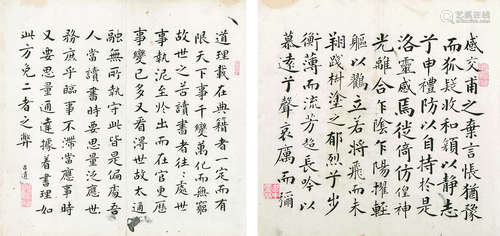 感交甫之棄言悵猶豫
而狐疑收和顏以靜志
兮申禮防以自持於是
洛靈感焉徙倚彷徨神
光離合乍陰乍陽擢輕
軀以鶴立若將飛而未
翔踐椒塗之郁烈兮步
衡薄而流芳超長吟以
慕遠兮聲哀厲而彌
道理載在典籍者一定而有
限天下事千變萬化而無窮
故世之苦讀書者往々處世
事執泥至於出而在官更歷
事變已多又看得世故太通
融無所執守此皆是偏處吾
人當讀書時要思量泛應世
務庶乎臨事不滯當應事時
又要思量通達據着書理如
此方免二者之弊